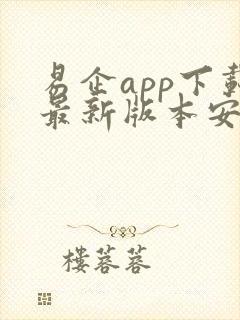 易企app下载
最新版本安
楼蓉蓉